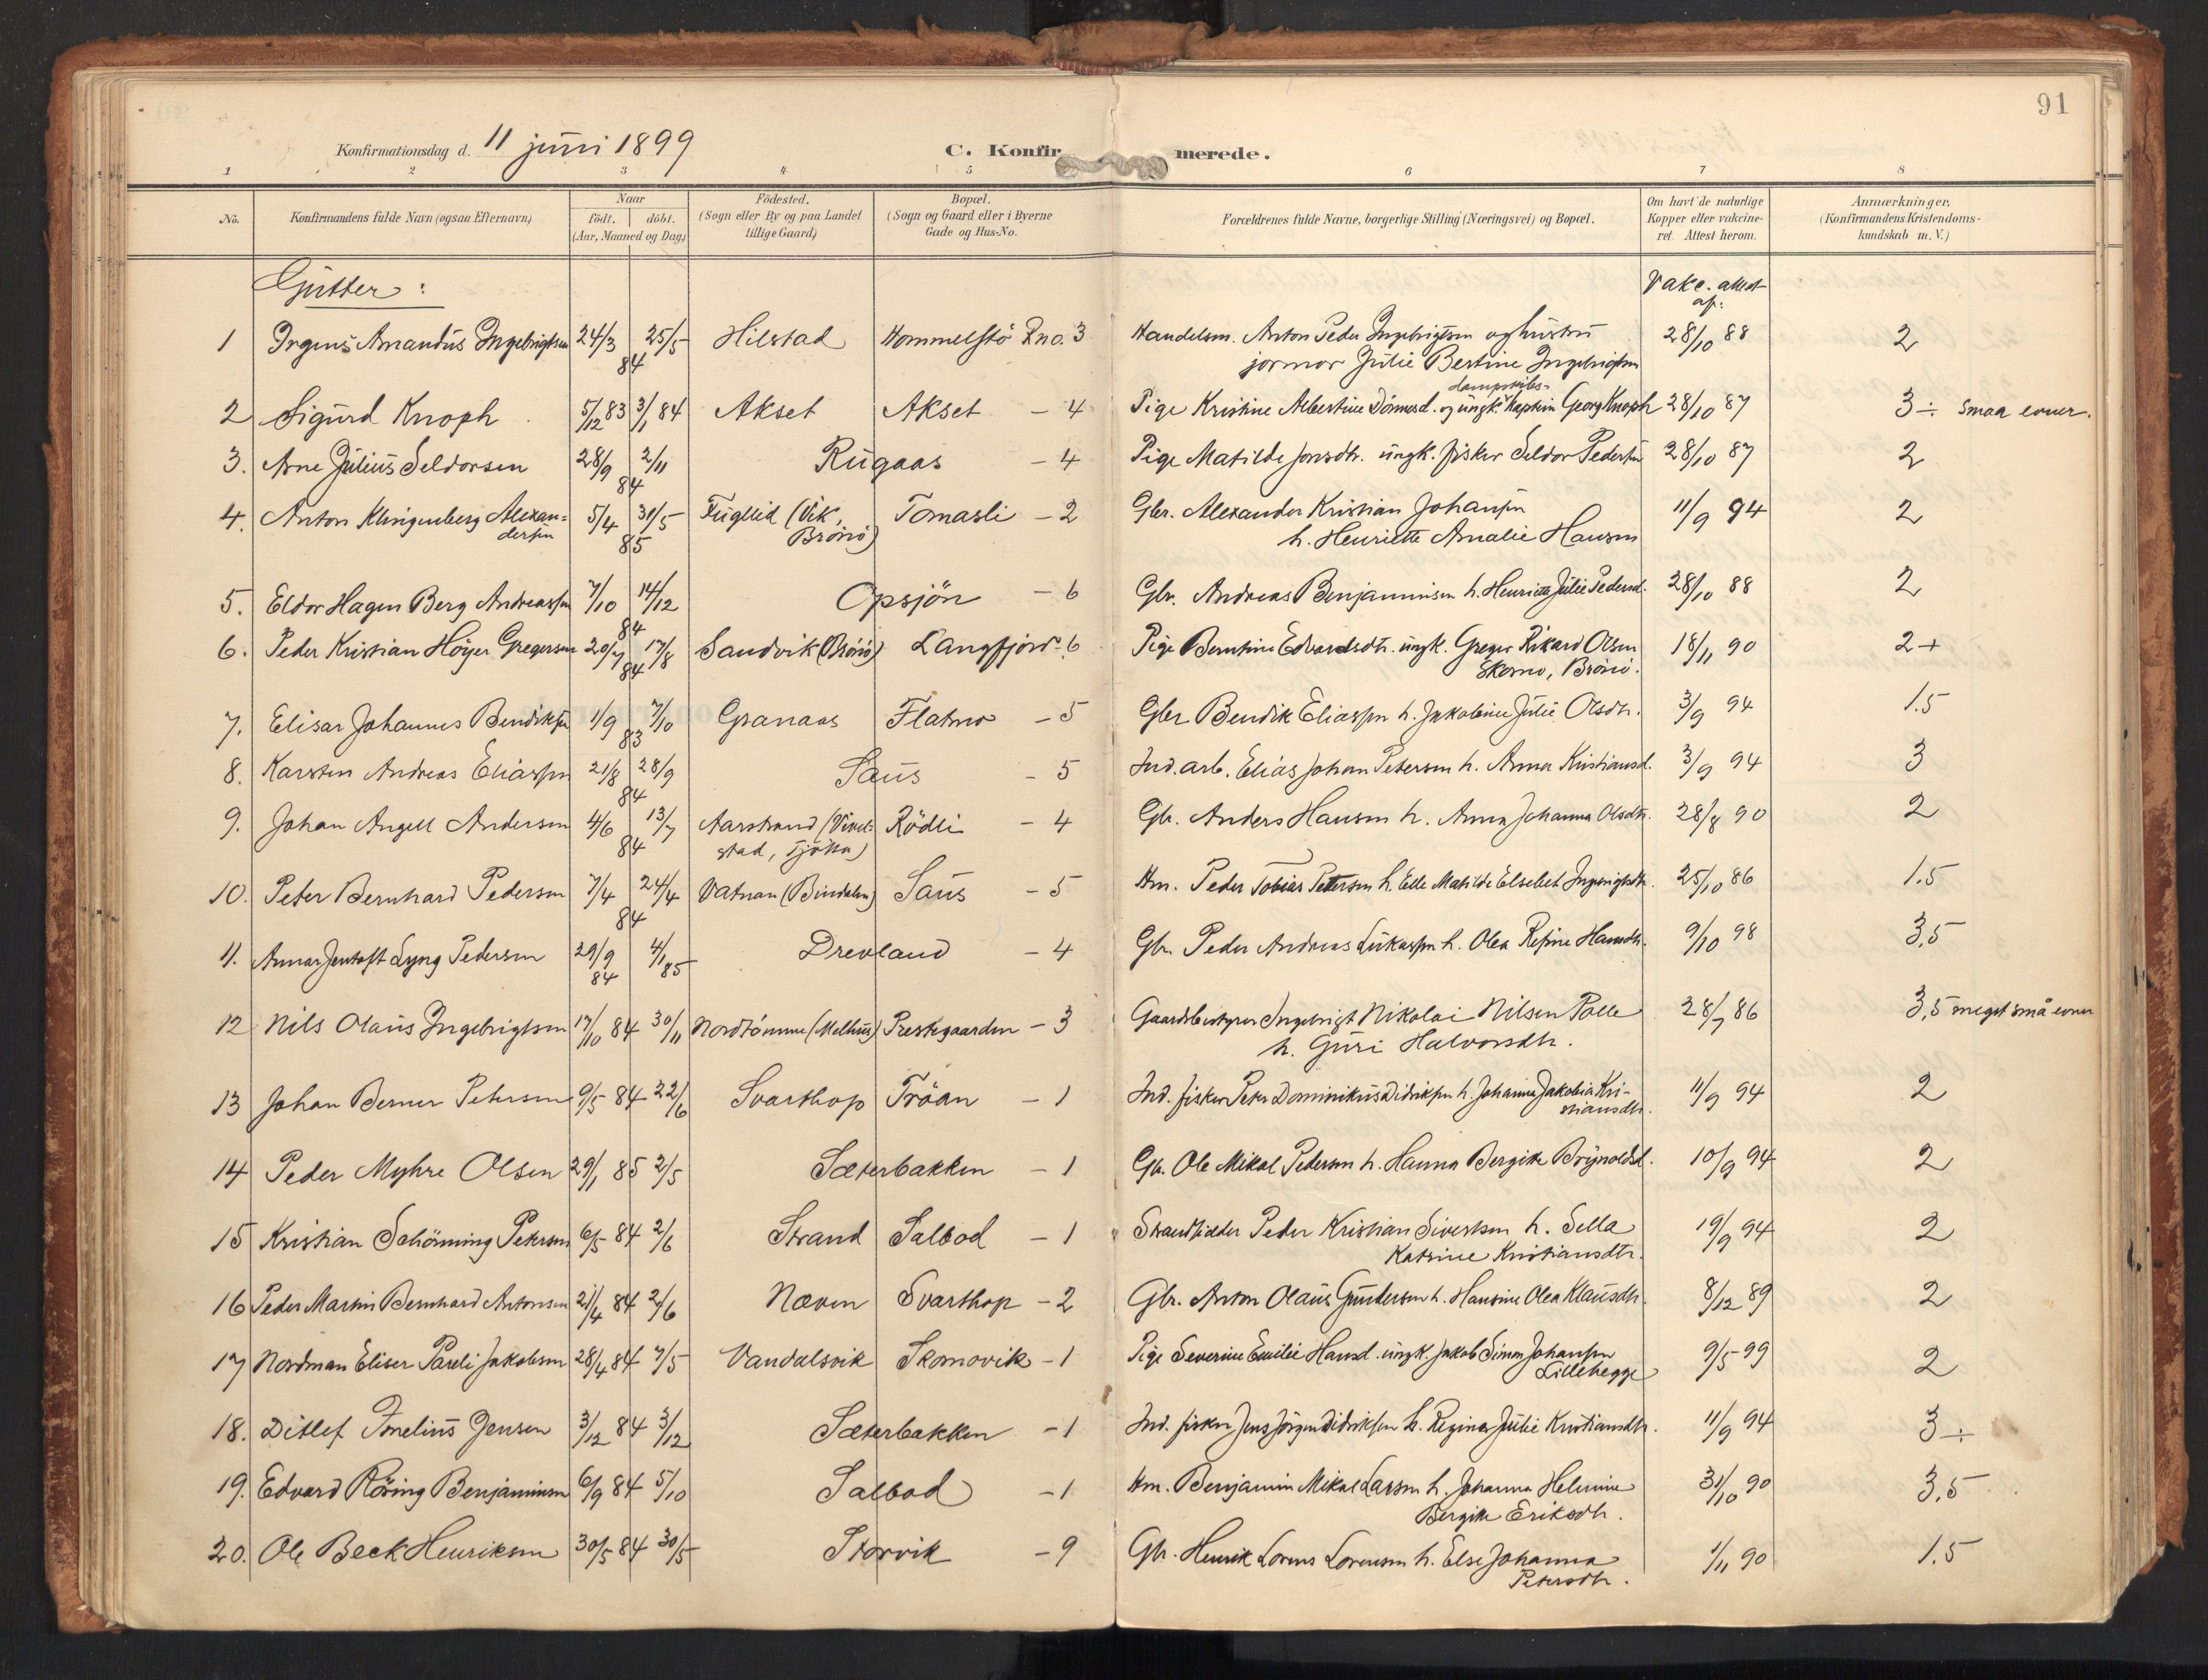 91
Konfirmationsdag d. 11 juni 1899 C. Konfirmerede.
1 2 3 4 5 6 7 8
No. Konfirmandens fulde Navn (ogsaa Efternavn) Naar födt. döbt. (Aar, Maaned og Dag) Födested. (Sogn eller By og paa Landet tillige Gaard) Bopæl. (Sogn og Gaard eller i Byerne Gade og Hus-No. Forældrenes fulde Navne, borgerlige Stilling (Næringsvei) og Bopæl. Om havt de naturlige Kopper eller vakcineret. Attest herom. Anmærkninger. (Konfirmandens Kristendomskundskab m. V.)
Gutter: Vakc. attest af:
1 Amandus Ingebrigtsen 24/3 25/5 84 Hilstad Hommelstö Rno. 3 Handelsm. Anton Peder Ingebrigtsen og hustru 28/10 88 2
jormor Julie Bertine Ingebrigtsen
2 Sigurd Knoph 5/12 83 3/1 84 Akset Akset - 4 Pige Kristine Albertine Dönnesd. og ungk. dampskibs- Kaptein Georg Knoph 28/10 87 3 ÷ smaa evner.
3. Arne Julius Seldorsen 28/9 2/11 84 Rugaas - 4 Pige Matilde Jonsdtr. ungk. fisker Seldor Pedersen 28/10 87 2
4. Anton Klingenberg Alexan= 5/4 31/5 85 Fugllid (Vik, Tomasli - 2 Gbr. Alexander Kristian Johansen 11/9 94 2
dersen Brönö) h. Henriette Amalie Hansen
5. Eldor Hagen Berg Andreassen 7/10 14/12 84 Opsjön - 6 Gbr. Andreas Benjaminsen h. Henriette Julie Pedersd. 28/10 88 2
6. Peder Kristian Höyer Gregersen 20/7 17/8 84 Sandvik (Brönö) Langfjord - 6 Pige Berntine Edvardsdtr. ungk. Greger Rikard Olsen 18/11 90 2+
Skomo, Brönö.
7. Elisar Johannes Bendiksen 1/9 7/10 83 Granaas Flatmo - 5 Gbr. Bendik Eliassen h. Jakobine Julie Olsdtr. 3/9 94 1.5
8. Karsten Andreas Eliassen 21/8 28/9 84 Saus - 5 Ind. arb. Elias Johan Petersen h. Anna Kristiansd. 3/9 94 3
9. Johan Angell Andersen 4/6 13/7 84 Aarstrand (Vivel- Rödli - 4 Gbr. Anders Hansen h. Anna Johanna Olsdtr. 28/8 90 2
stad, Tjötta)
10. Peter Bernhard Pedersen 7/4 24/4 84 Vatnan (Bindalen) Saus - 5 Hm. Peder Tobias Petersen h. Elle Matilde Elsebet Ingebrigtsdtr. 25/10 86 1.5
11. Annar Jentoft Lyng Pedersen 29/9 84 4/1 85 Drevland - 4 Gbr. Peder Andreas Lukassen h. Olea Refine Hansdtr. 9/10 98 3,5
12 Nils Olaus Ingebrigtsen 17/10 84 30/11 Nordtömme (Melhus) Prestegaarden - 3 Gaardsbestyrer Ingebrigt Nikolai Nilsen Polle 28/7 86 3,5 meget små evner
h. Guri Halvorsdtr.
13 Johan Berner Petersen 9/5 84 22/6 Svarthop Tröan - 1 Ind. fisker Peter Dominikus Didriksen h. Johanna Jakobia Kri- 11/9 94 2
stiansdtr.
14 Peder Myhre Olsen 29/1 85 2/5 Sæterbakken - 1 Gbr. Ole Mikal Pedersen h. Hanna Bergitte Brynoldsd. 10/9 94 2
15 Kristian Schönning Petersen 6/5 84 2/6 Strand Salbod - 1 Strandsidder Peder Kristian Sivertsen h. Sella 19/9 94 2
Katrine Kristiansdtr.
16 Peder Martin Bernhard Antonsen 21/4 84 2/6 Næven Svarthop - 2 Gbr. Anton Olaus Gundersen h. Hansine Olea Klausdtr. 8/12 89 2
17 Nordman Eliser Pareli Jakobsen 28/4 84 7/5 Vandalsvik Skomovik - 1 Pige Severine Emilie Hansd. ungk. Jakob Simon Johansen 9/5 99 2
Lillehegge
18. Ditlef Imelius Jensen 3/12 84 3/12 Sæterbakken - 1 Ind. fisker Jens Jörgen Didriksen h. Regine Julie Kristiansdtr. 11/9 94 3 ÷
19. Edvard Röring Benjaminsen 6/9 84 5/10 Salbod - 1 Hm. Benjamin Mikal Larsen h. Johanna Helmine 31/10 90 3,5
Bergitte Eriksdtr.
20. Ole Beck Henriksen 30/5 84 30/5 Storvik - 9 Gbr. Henrik Lorens Lorensen h. Else Johanna 1/11 90 1.5
Petersdtr.